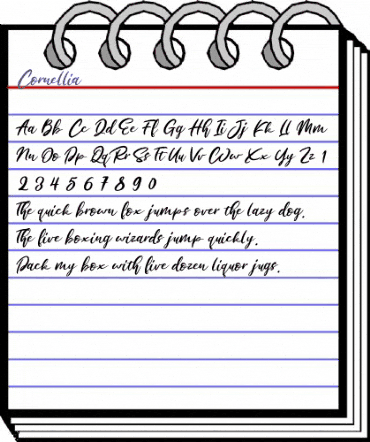 Cornellia
Aa Bb Cc Dd Ee Ff Gg Hh Ii Jj Kk Ll Mm
Nn Oo Pp Qq Rr Ss Tt Uu Vv Ww Xx Yy Zz 1
2 3 4 5 6 7 8 9 0
The quick brown fox jumps over the lazy dog.
The five boxing wizards jump quickly.
Pack my box with five dozen liquor jugs.